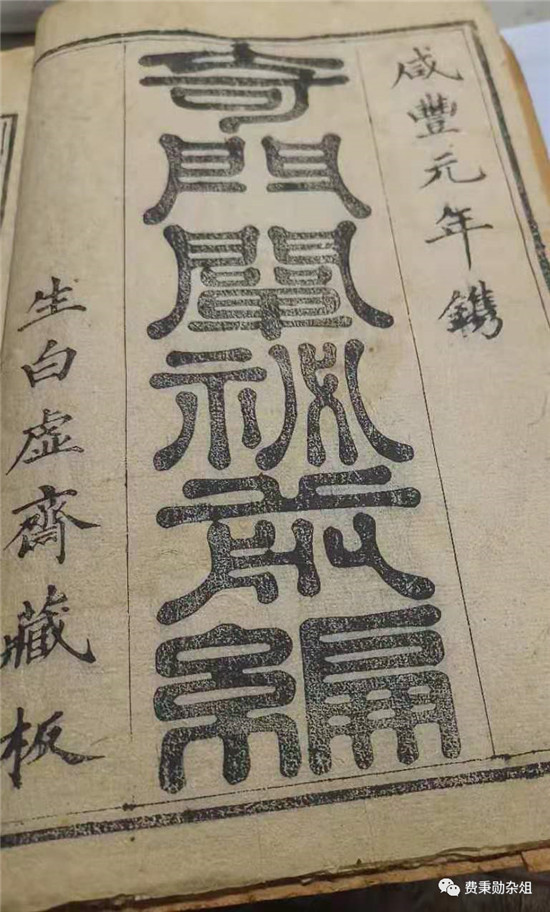 咸豐元年鐫
奇門闡秘編
生白虛齋藏板
费秉勋杂俎